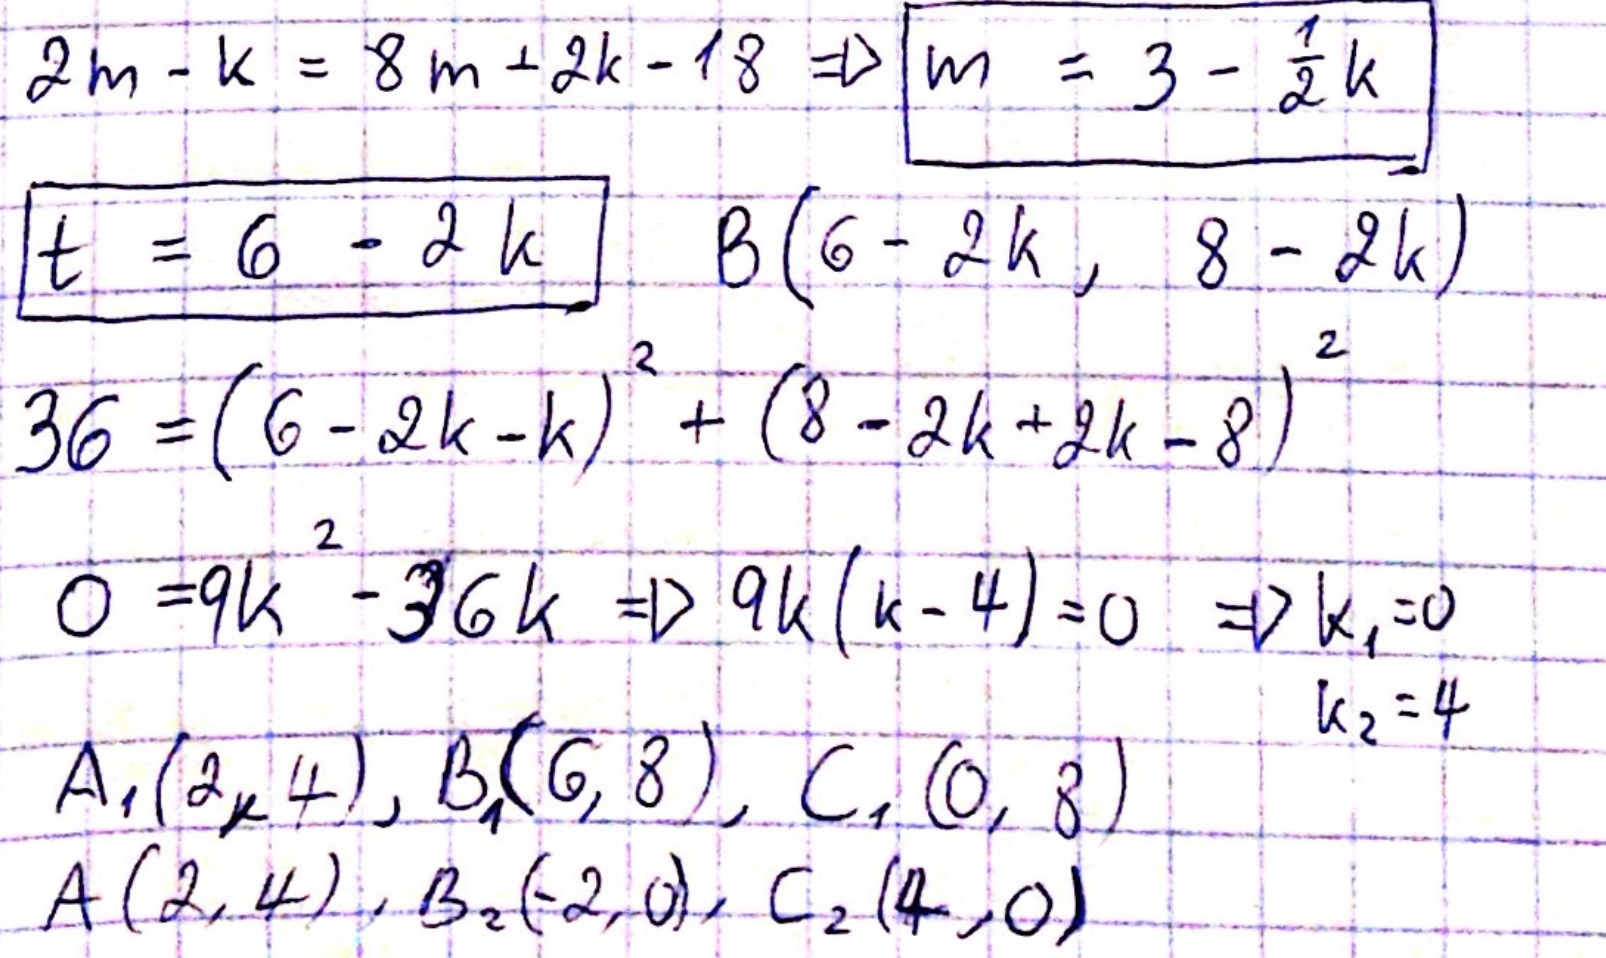 2m - k = 8m + 2k - 18 => m = 3 - 1/2 k
t = 6 - 2k   B(6 - 2k, 8 - 2k)
36 = (6 - 2k - k)² + (8 - 2k + 2k - 8)²
0 = 9k² - 36k => 9k(k - 4) = 0 => k₁ = 0
k₂ = 4
A₁(2, 4), B₁(6, 8), C₁(0, 8)
A(2, 4), B₂(-2, 0), C₂(4, 0)